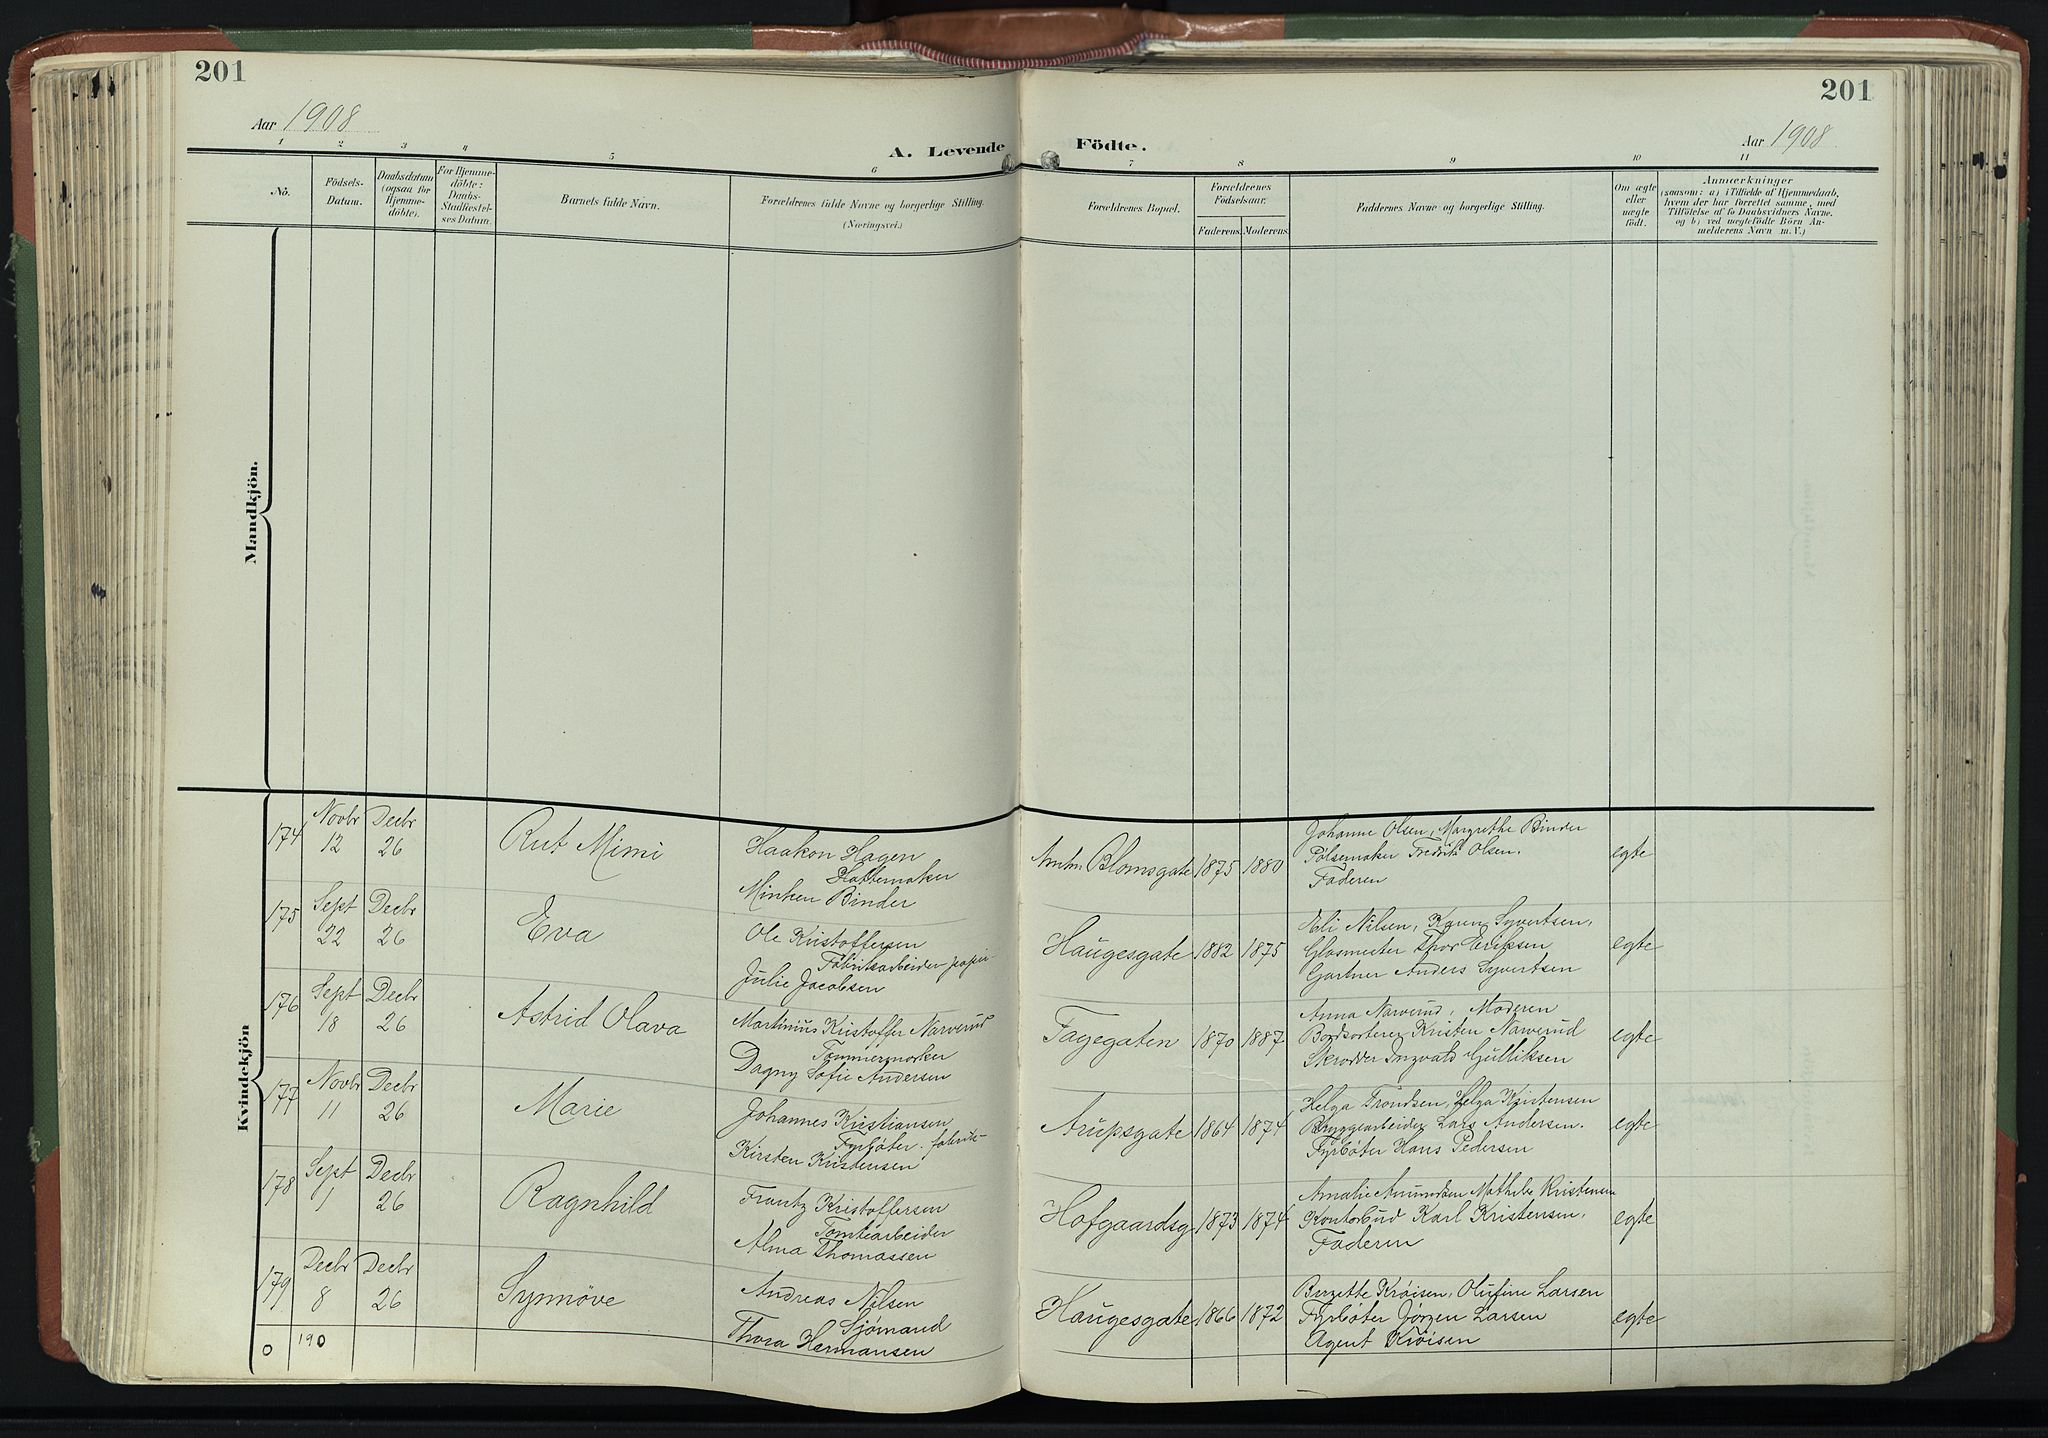 201
201
Aar 1908
Aar 1908
A. Levende Födte.
1 2 3 4 5 6 7 8 9 10 11
No.
Födsels-
Datum.
Daabsdatum
(ogsaa for
Hjemme-
döbte).
For Hjemme-
döbte:
Daabs-
Stadfæstel-
ses Datum.
Barnets fulde Navn.
Forældrenes fulde Navne og borgerlige Stilling.
(Næringsvei.)
Forældrenes Bopæl.
Forældrenes
Födselsaar.
Faderens. Moderens.
Faddernes Navne og borgerlige Stilling.
Om ægte
eller
uægte
födt.
Anmærkninger
(saasom: a) i Tilfælde af Hjemmedaab,
hvem der har forrettet samme, med
Tilföielse af to Daabsvidners Navne,
og b) ved uægtefödte Börn An-
melderens Navn m. V.)
Mandkjön.
Kvindekjön
174
Novbr
12
Decbr
26
Rut Mimi
Haakon Hagen
Hattemaker
Minken Binder
Amtm. Blomsgate
1875
1880
Johanne Olsen, Margrethe Binder
Pølsemaker Fredrik Olsen.
Faderen
egte
175
Sept
22
Decbr
26
Eva
Ole Kristoffersen
Fabriksarbeider papir-
Julie Jacobsen
Haugesgate
1882
1875
Eli Nilsen, Karen Syvertsen,
Glasmester Thor Eriksen
Gartner Anders Syvertsen
egte
176
Sept
18
Decbr
26
Astrid Olava
Martinius Kristoffer Narverud
Tømmermerker
Dagny Sofie Andersen
Fagegaten
1870
1887
Anna Narverud, Moderen
Bordsorterer Kristen Narverud
Skrædder Ingvald Gulliksen
egte
177
Novbr
11
Decbr
26
Marie
Johannes Kristiansen
Fyrbøter. fabrik-
Kirsten Kristensen
Arupsgate
1864
1874
Helga Trondsen, Helga Kristensen
Bryggearbeider Lars Andersen.
Fyrbøter Hans Pedersen
egte
178
Sept
1
Decbr
26
Ragnhild
Frantz Kristoffersen
Tomtearbeider
Alma Thomassen
Hofgaardsg
1873
1874
Amalie Amundsen Mathilde Kristensen
Kontorbud Karl Kristensen,
Faderen
egte
179
Decbr
8
Decbr
26
Synnøve
Andreas Nilsen
Sjømand
Thora Hermansen
Haugesgate
1866
1872
Birgette Krøisen, Olufine Larsen
Fyrbøter Jørgen Larsen
Agent Krøisen
egte
0
190